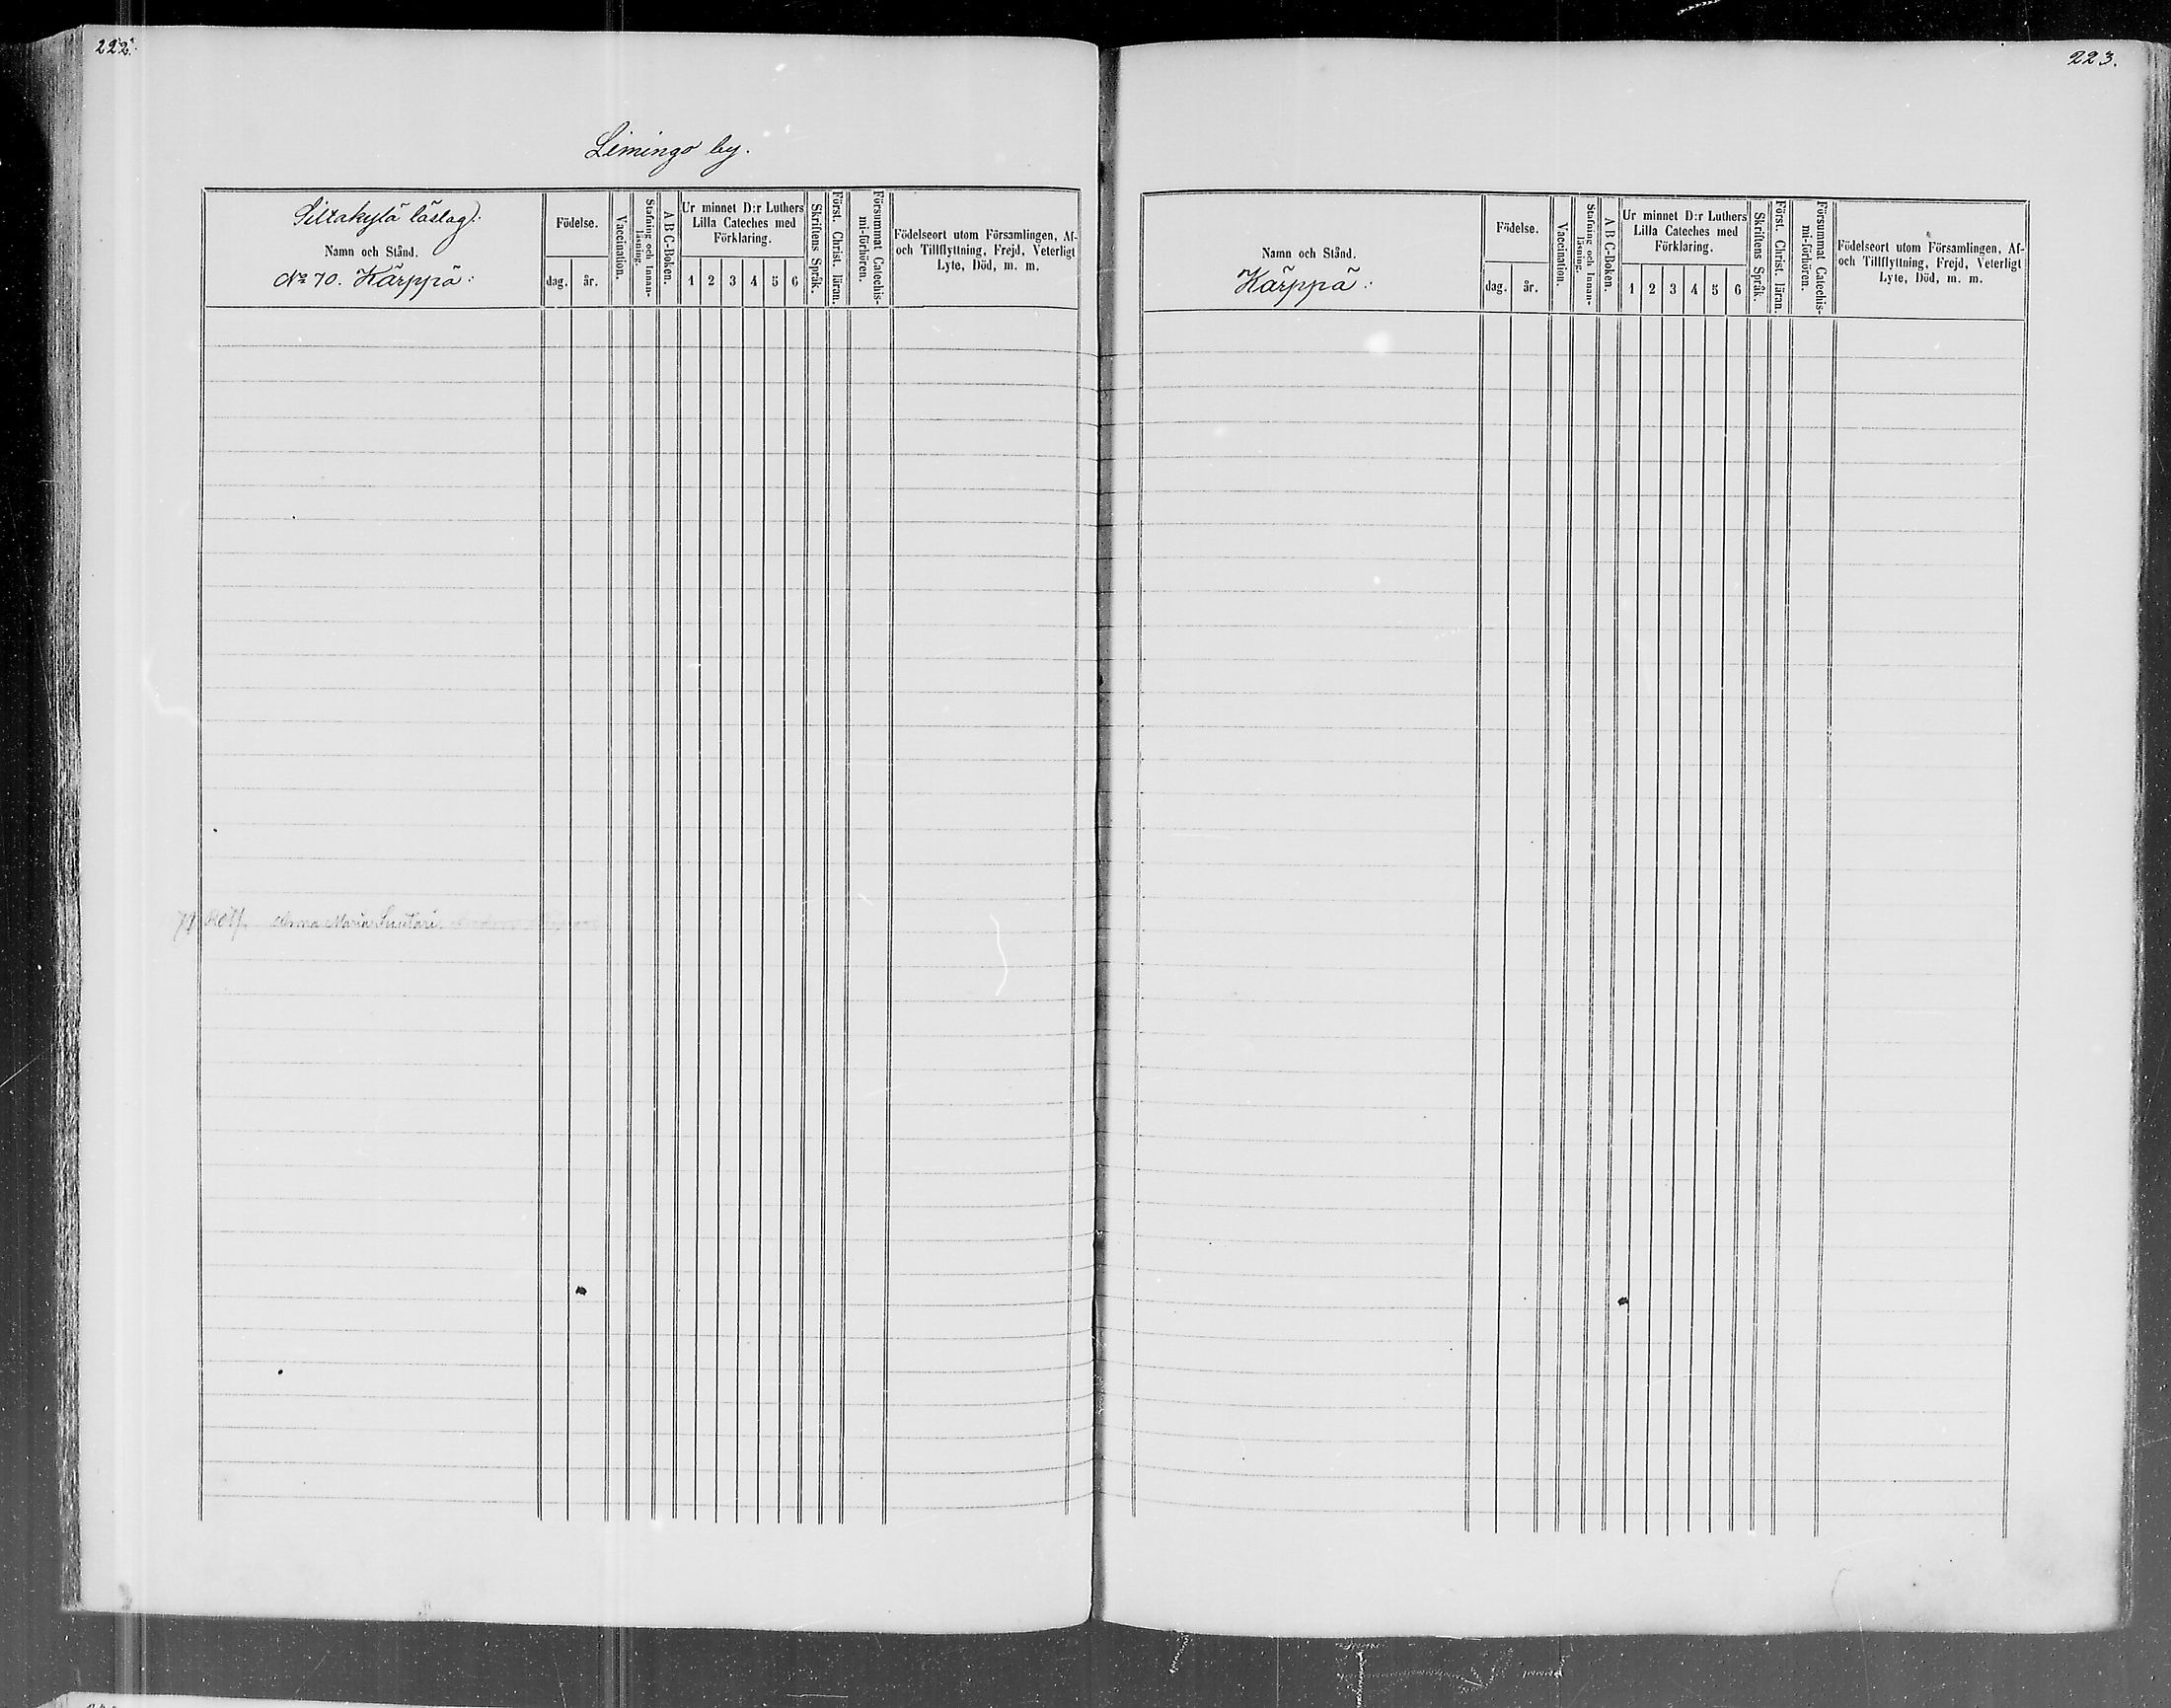 222.
Limingo by.
Siltakylä läslag:
Namn och Stånd.
No 70. Kärppä:
Födelse.
dag.
år.
Vaccination.
Stafning och Innan-
läsning.
A B C-Boken.
Ur minnet D:r Luthers
Lilla Cateches med
Förklaring.
1 2 3 4 5 6
Skriftens Språk.
Först. Christ. läran.
Försummat Catechis-
mi-förhören.
Födelseort utom Församlingen, Af-
och Tillflyttning, Frejd, Veterligt
Lyte, Död, m. m.
Anna Maria
223.
Namn och Stånd.
Kärppä:
Födelse.
dag.
år.
Vaccination.
Stafning och Innan-
läsning.
A B C-Boken.
Ur minnet D:r Luthers
Lilla Cateches med
Förklaring.
1 2 3 4 5 6
Skriftens Språk.
Först. Christ. läran.
Försummat Catechis-
mi-förhören.
Födelseort utom Församlingen, Af-
och Tillflyttning, Frejd, Veterligt
Lyte, Död, m. m.